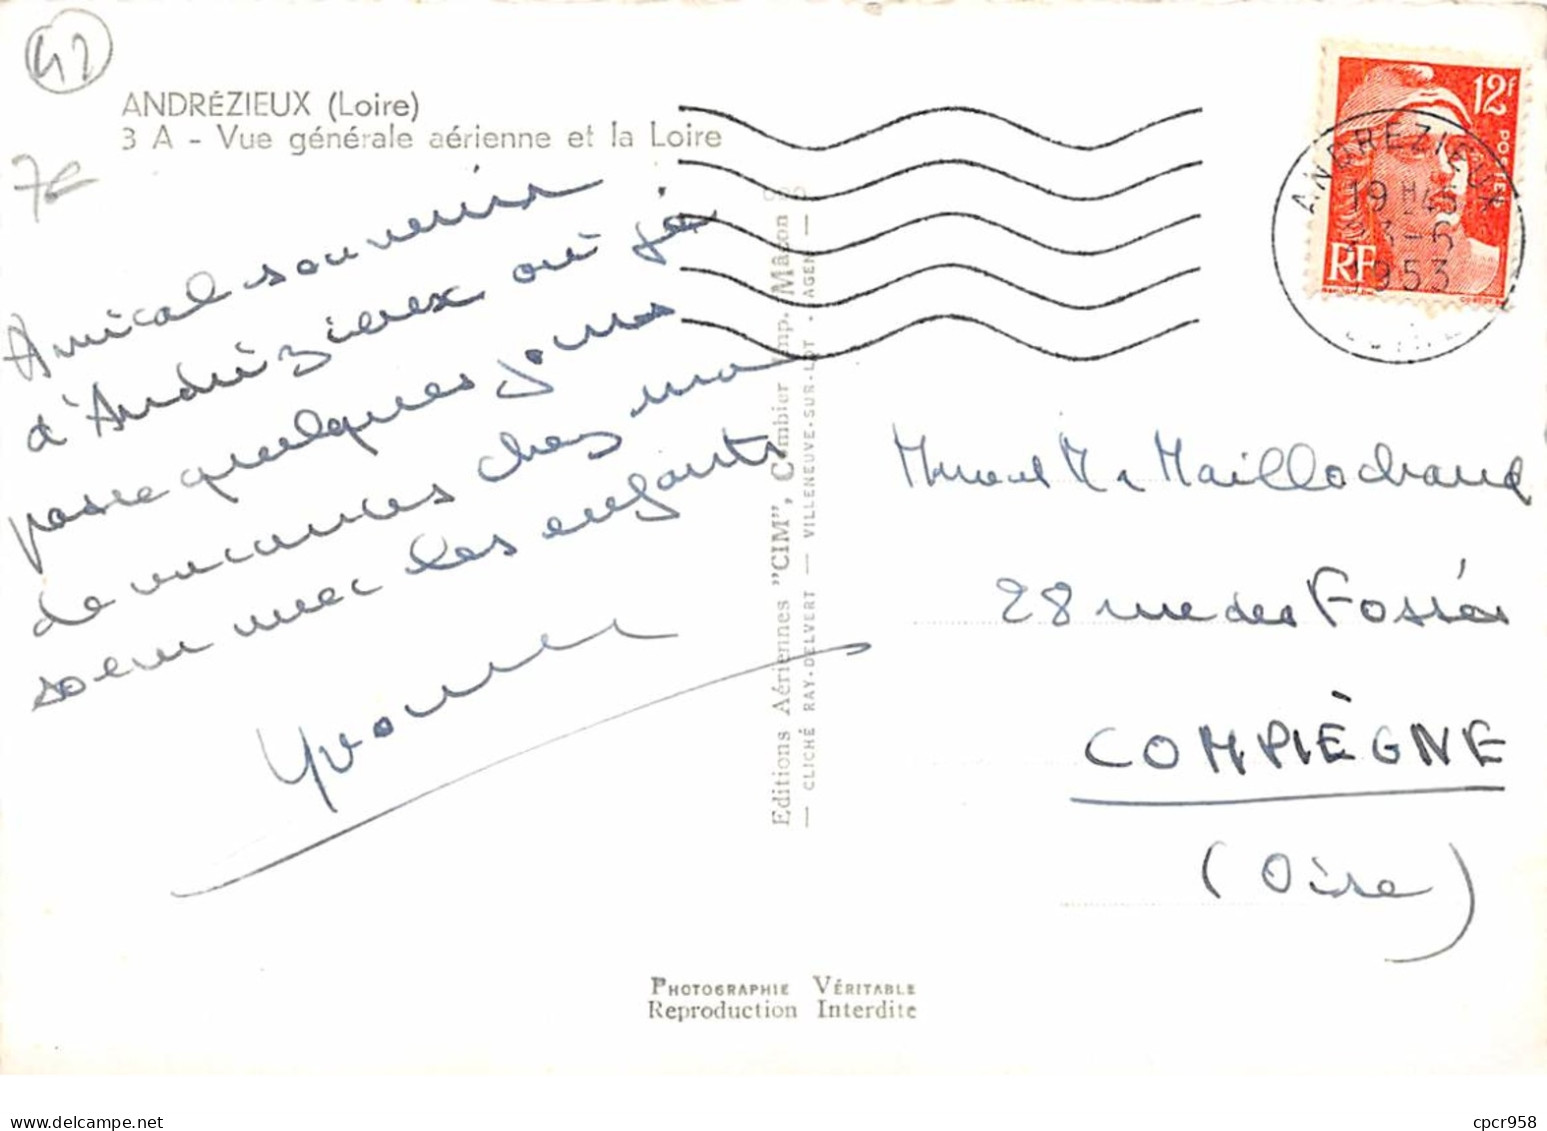 42
ANDRÉZIEUX (Loire)
3 A - Vue générale aérienne et la Loire
7€
Amical souvenir
d'Andrézieux où je
passe quelques jours
de vacances chez ma
soeur avec les enfants
Yvonne
Editions Aériennes "CIM", Combier Imp. Macon
— CLICHÉ RAY-DELVERT — VILLENEUVE-SUR-LOT - AGEN —
12F
POSTES
RF
ANDREZIEUX
19 H45
1953
LOIRE
Mr Maillochaud
28 rue des Fossés
COMPIÈGNE
(Oise)
PHOTOGRAPHIE VÉRITABLE
Reproduction Interdite
www.delcampe.net
cpcr958